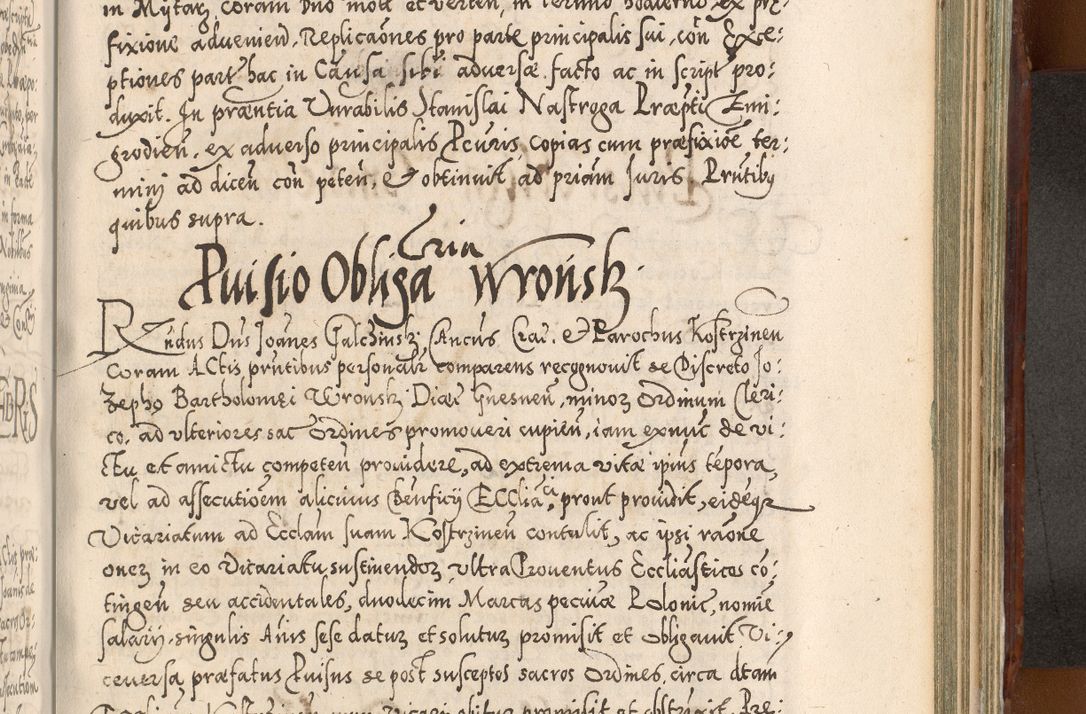 in Mytaꝝ, coram Dno mole et verten, in Termino hodierno ex prę
fixione advenien. Replicaōnes pro parte principalis sui, con Exce:
ptiones part hac in Causa sibi adversæ facto ac in script pro:
duxit. In præntia Vnrabilis Stanislai Nastroga Præpti Zmi:
grodien, ex adverso principalis Pcuris, copias cum præfixiōe ter:
mini ad dicen con peten, & obtinuit ad priam Juris. Prntiby
quibus supra.
Puisio Obligaoria Wrońsk
Rndus Dus Joanes Galczinsk, Cancus Crac. & Parochus Kostrzinen
Coram Actis prntibus personalr comparens recognovit se Discreto Jo:
zepho Bartholomei Wronsk Diæc Gnesnen, minoꝝ Ordinum Cleri:
co, ad vlteriores sac Ordines promoveri cupien, iam exnuc de vi:
ctu et amictu competen providere, ad extrema vitæ ipius tēpora,
vel ad assecutioēm alicuius Bēnficij Eccliaci, prout providit, eidēqꝫ
Vicariatum ad Ecclam suam Kostrzinen contulit, ac ipsi raōne
oneꝝ in eo Vicariatu sustinendoꝝ vltra Proventus Ecclīasticos cō:
tingen seu accidentales, duodecim Marcas pecuīæ Polonic, nomīe
salarij singulis Anis sese datuꝝ et solutuꝝ promisit et obligavit Vi:
ceversa, præfatus Puisus se post susceptos sacros Ordines, circa dtam